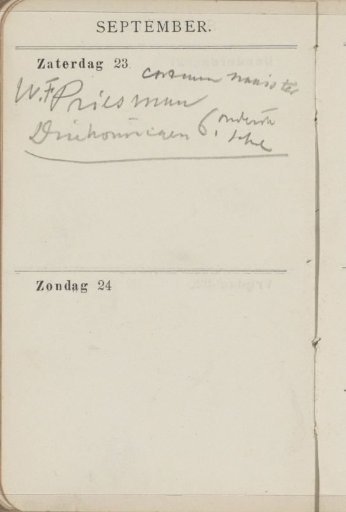 SEPTEMBER.
Zaterdag 23
costuum naaister
W.F. Priesman
Driekoningen 6.
Zondag 24